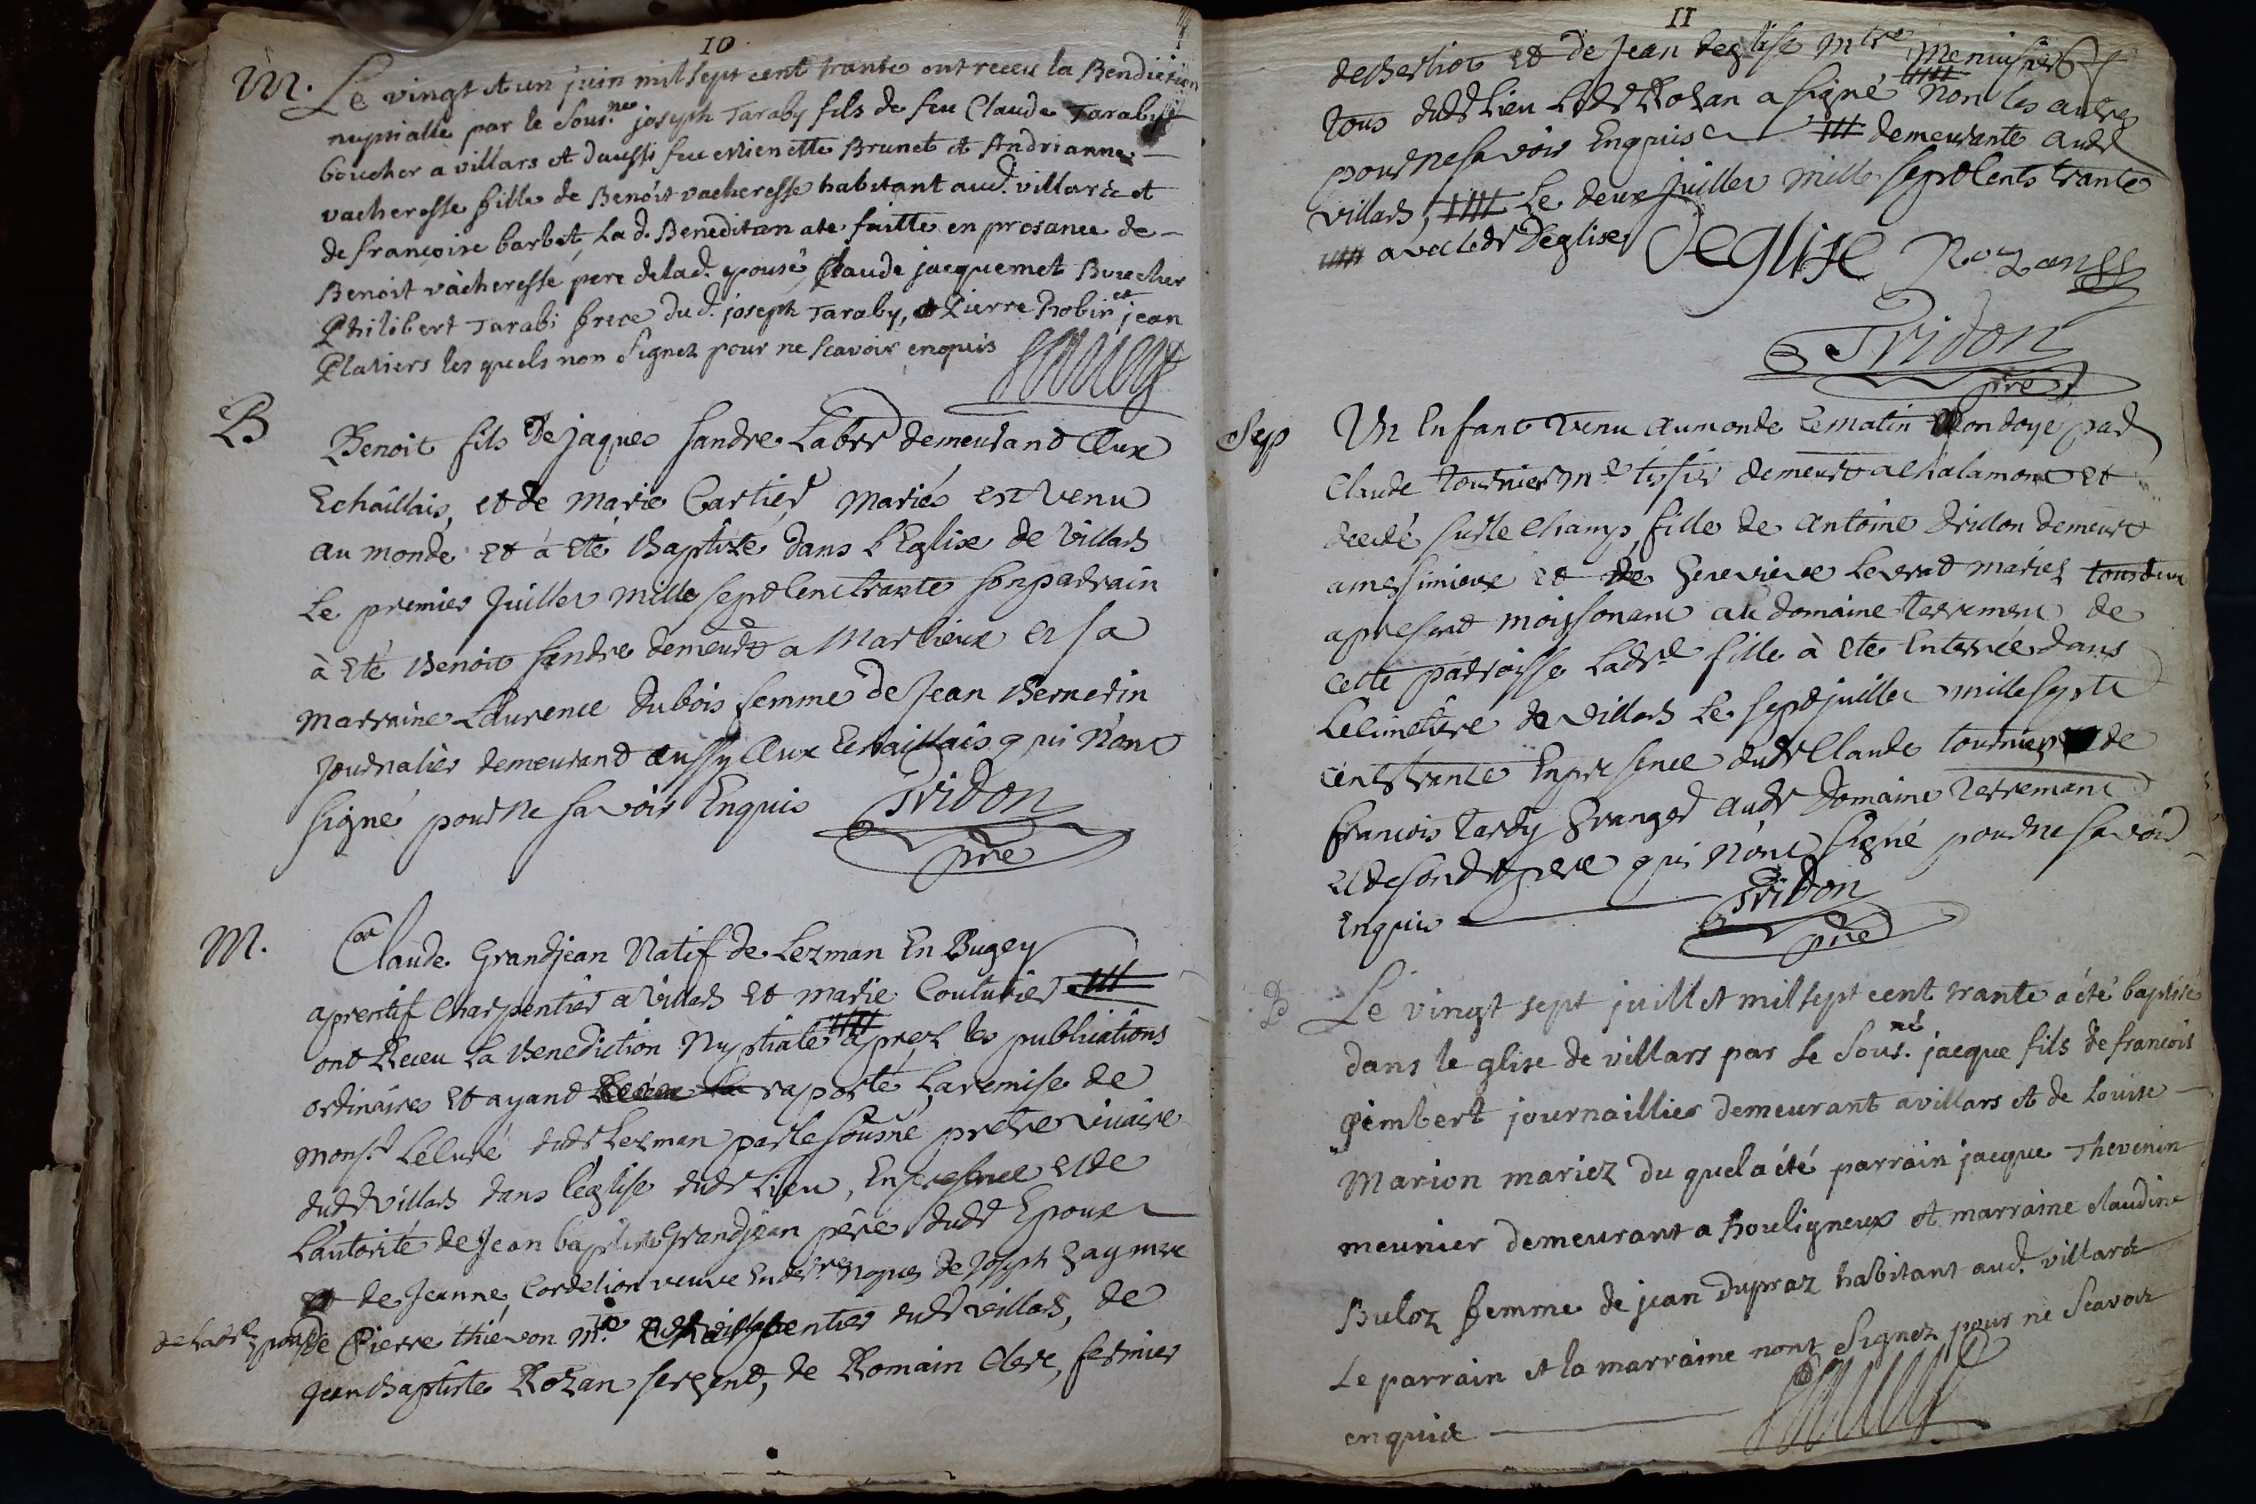 10
M. Le vingt et un juin mil sept cent trante ont receu la Bendiction
nuptialle par le Sous.né joseph Taraby fils de feu Claude Taraby
boucher a villars et daussi feu estienette Brunet et Andrianne
vacheresse fille de Benoit vacheresse habitant aud. villars et
de francoise barbet, la d. Beneditan ate faitte en prosance de
Benoit vacheresse pere de lad. epouse, Claude jacquemet Boucher
Philibert Tarabi frere du d. joseph Taraby, Pierre Robin et jean
Platiers les quels non Signez pour ne scavoir enquis
B
Benoit fils De jaques sandre Labr demeurand Aux
Echaillais, et de Marie Cartier Mariés est venu
au monde et à eté Baptizé dans l'Eglise de Villars
Le premier Juillet Mille sept Cent trante son parrain
à eté Benoit sandre demeurt a Marlieux et sa
marraine Laurence dubois femme de Jean Bernerin
journalier demeurand aussy Aux Echaillais qui n'ont
signé pour ne savoir Enquis Tridon
pre
M. Claude Grandjean Natif de Lezman En Bugey
aprentif Charpentier a villars et marie Couturier
ont Receu La Benediction Nuptiale aprez les publications
ordinaires et ayand raporté, La remise de
Monsr Le Curé dudt Lezman par le sousné pretre vicaire
dudt villars dans l'eglise dudt Lieu, En presence et de
L'autorité de Jean baptiste Grandjean père dudt Epoux
et de Jeanne Cordelion veuve En derres nopces de Joseph
de ladte epouse De Pierre thievon Mtre Charpentier dudt villars, de
Jean Baptiste Rozan sergend, de Romain Clerc, fermier
11
de Jean deglise Mtre Menuisier
tous dudt Lieu Ledt Rozan a signé Non les autres
pour ne savoir Enquis demeurante audt
villars, Le deux Juillet Mille sept Cents trante
avec ledt Deglise Deglise Rozan
Tridon
pre
Sep Un Enfant venu au monde ce matin Ondoyé par
Claude tournier Me tissier demeurt a Chalamont et
decedé sur le champ, fille de Antoine dridon demeurt
a messimieux et de Genevieve Leverat mariez
a present moissonant au domaine terrement de
cette parroisse Ladte fille à eté Enterrée dans
Le Cimetiere de villars Le sept juillet mille sept
cent trante En presence dudt Claude tournier de
francois tardy Granger audt Domaine terrement
et de son dt pere qui n'ont signé pour ne savoir
Enquis Tridon
pre
B Le vingt sept juillet mil sept cent trante a été baptisé
dans le glise de villars par le Sous.né jacque fils de francois
Gimbert journaillier demeurant a villars et de Louise
Marion mariez du quel a été parrain jacque Thevenin
meunier demeurant a Bouligneux et marraine claudine
Buloz femme de jean dupraz habitant aud. villars
Le parrain et la marraine nont Signez pour ne Scavoir
enquis